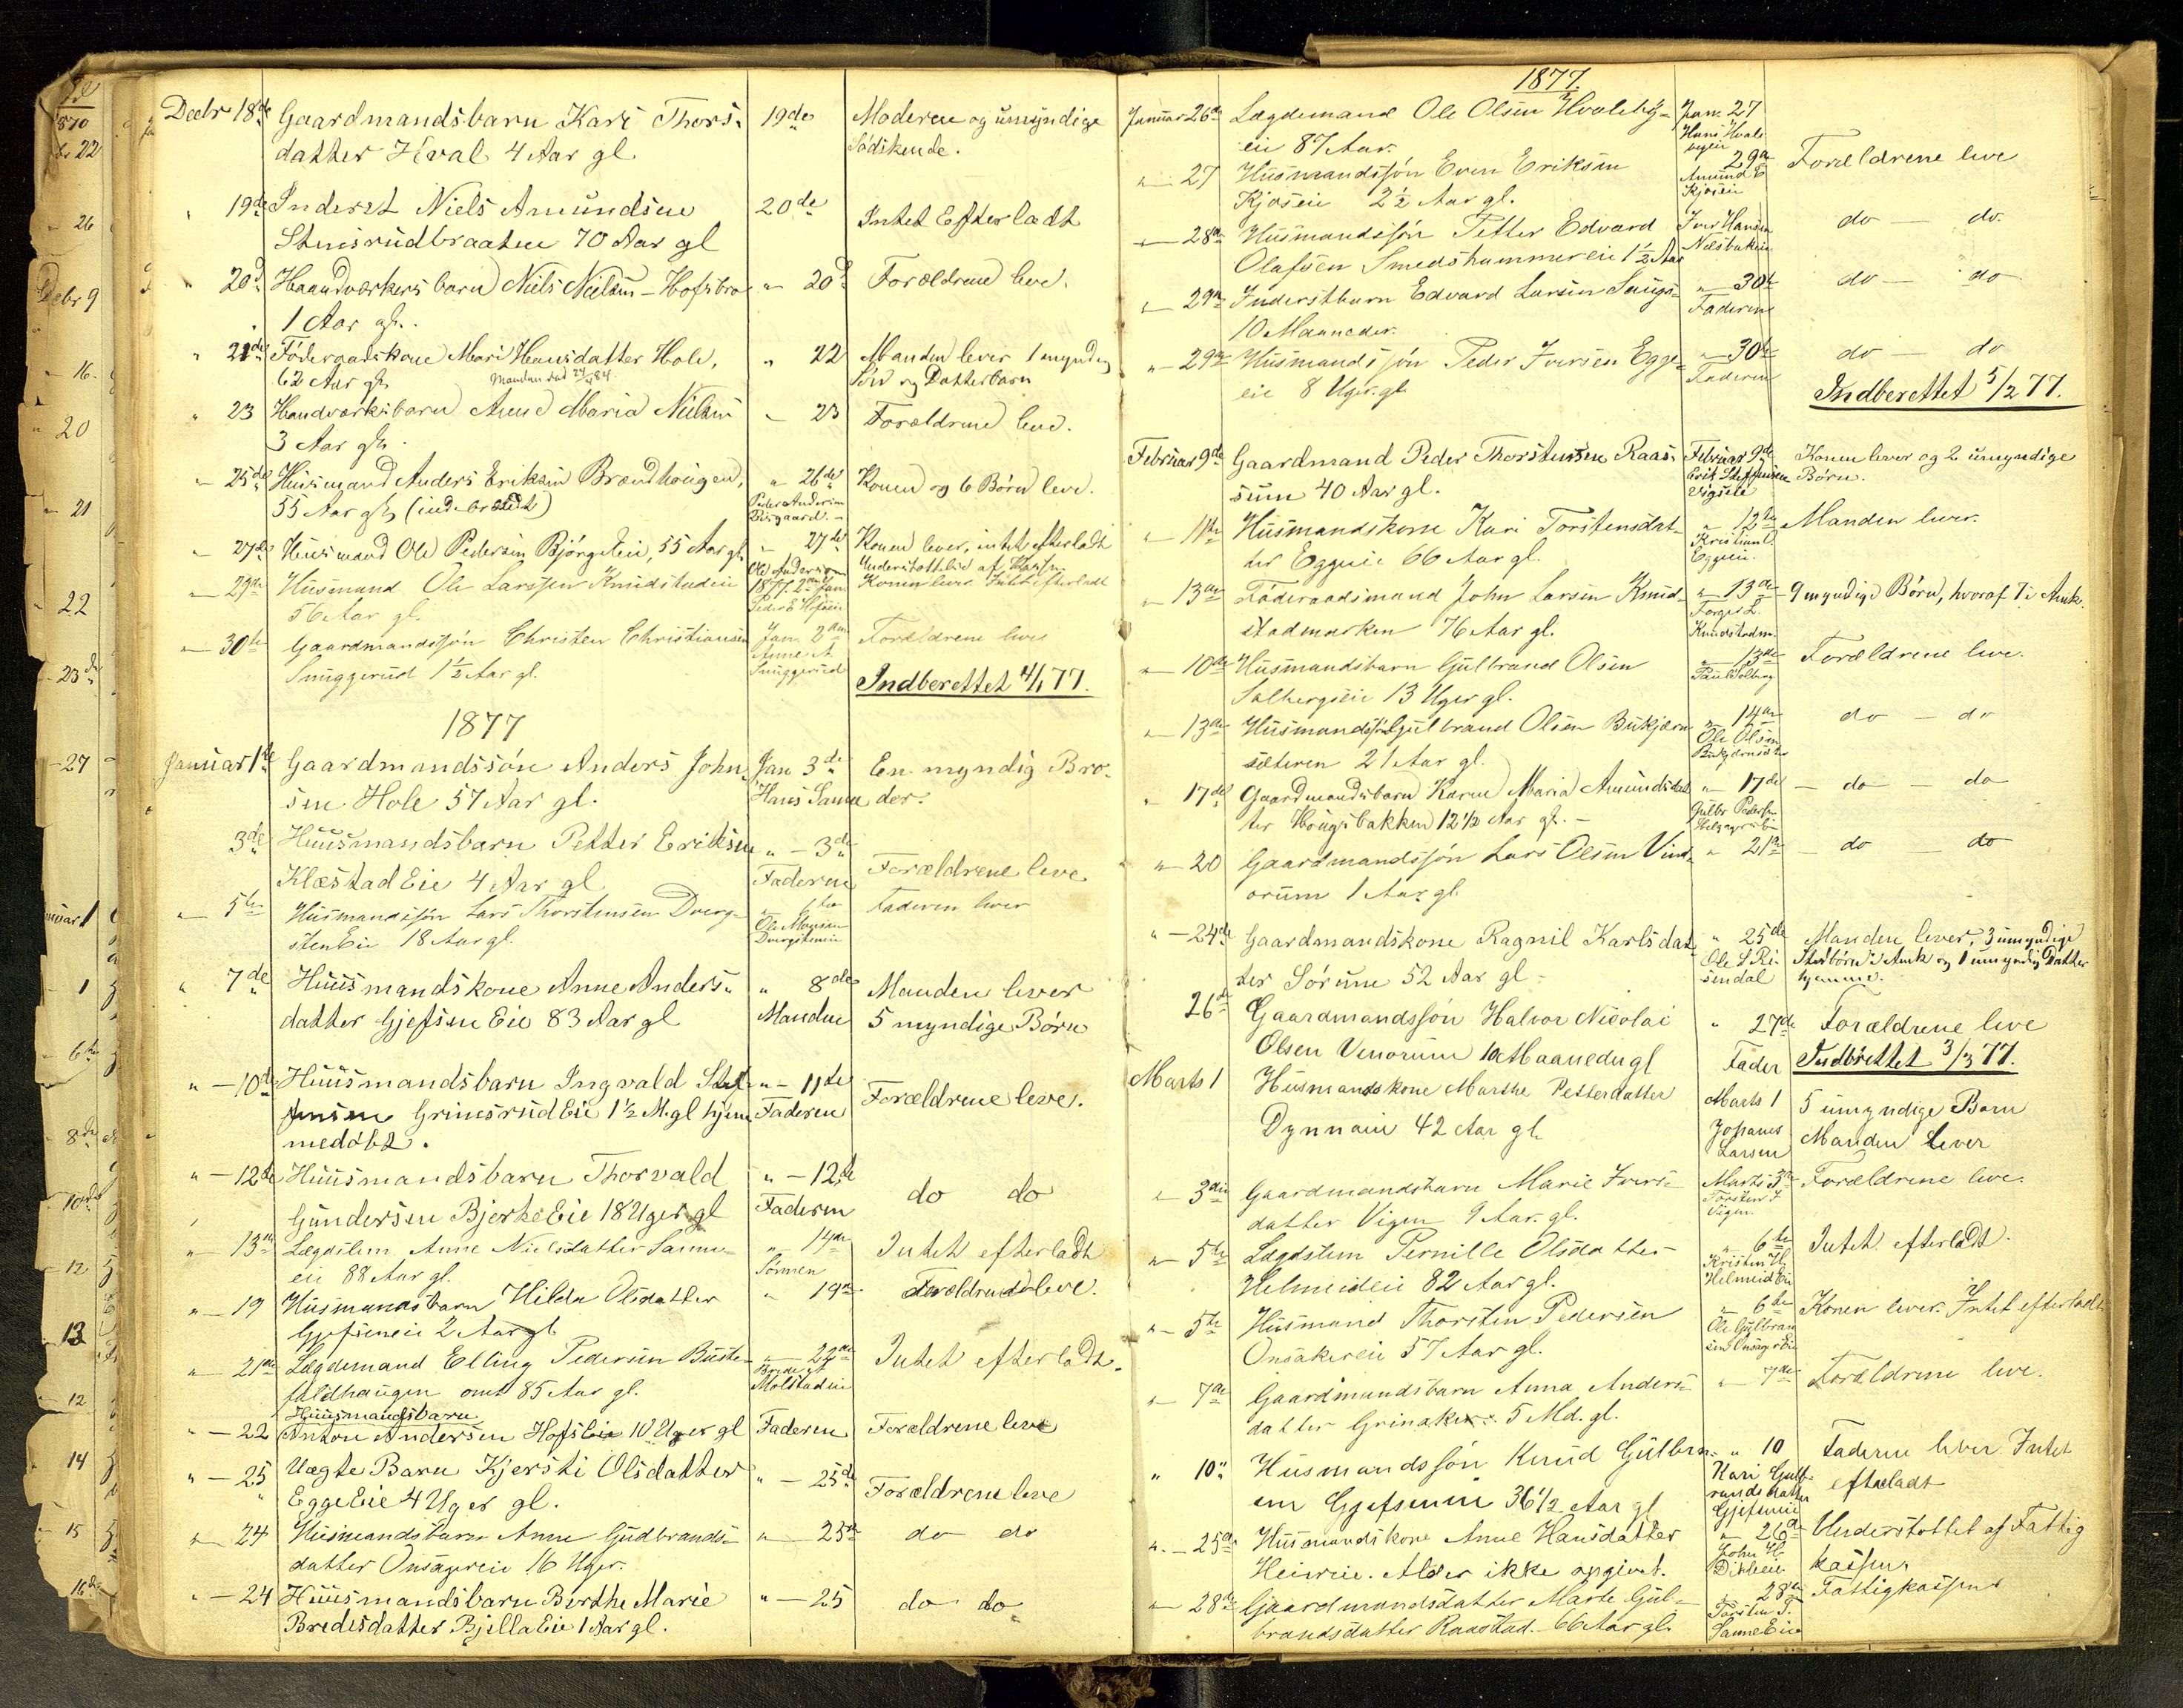 Decbr 18de Gaardmandsbarn Kari Thors- 19de Moderen og umyndige
datter Hval 4 Aar gl Södskende.
" 19de Inderst Niels Amundsen 20de Intet Efterladt
Stensrudbraaten 70 Aar gl
" 20de Haandværkers barn Niels Nielsen - Hofsbro " 20de Forældrene leve.
1 Aar gl.
" 21de Föderaadskone Mari Hansdatter Hole, " 22 Manden lever 1 myndig
62 Aar gl. Manden död 24/4 84. Sön og Datterbarn
" 23 Handværksbarn Anne Maria Nielsen " 23 Forældrene leve.
3 Aar gl.
" 25de Huusmand Anders Eriksen Brændhougen, " 26de Konen og 6 Börn leve.
55 Aar gl, (indebrændt) Peder Andersen
" 27de Huusmand Ole Pedersen Björgeeie, 55 Aar gl. " 27de Konen lever, intet efterladt
Ole Andersen Understöttedes af Kassen
" 29de Husmand Ole Larssen Knudstadeie 1877. 2den Jan Konen lever Intet efterladt
56 Aar gl. Peder E Hofseie
" 30te Gaardmandssön Christen Christiansen Jan. 2den Forældrene leve
Snuggerud 1½ Aar gl. Anne A Snuggerud Indberettet 4/1 77.
1877
Januar 1ste Gaardmandssön Anders John- Jan 3de En myndig Bro-
sen Hole 57 Aar gl. Hans Sanne der.
3de Huusmandsbarn Petter Eriksen " - 3de Forældrene leve
Klæstad Eie 4 Aar gl Faderen
" 5te Husmandssön Lars Thorstensen Dverg- " 6te Faderen lever
sten Eie 18 Aar gl. Ole Monsen Dvergsteneie
" 7de Huusmandskone Anne Anders- " 8de Manden lever
datter Gjefsen Eie 83 Aar gl Manden 5 myndige Börn
" - 10de Huusmandsbarn Ingvald Stef- " - 11te Forældrene leve.
fensen Grimsrud Eie 1½ M. gl hjem- Faderen
medöbt.
" - 12te Huusmandsbarn Thorvald " - 12te do do
Gundersen Bjerke Eie 18 Uger gl Faderen
" 13de Lægdslem Anne Nielsdatter Sanne- " 14de Intet efterladt
eie 88 Aar gl. Sönnen
" - 19 Husmandsbarn Hilda Olsdatter " 19de Forældrene leve.
Gjefseneie 2 Aar gl
" 21de Lægdemand Elling Pedersen Buste- " 22de Intet efterladt.
faldhaugen omt 85 Aar gl. Molstadeie
Huusmandsbarn
" - 22 Anton Andersen Hofs Eie 10 Uger gl Faderen Forældrene leve
" - 25 Uægte Barn Kjersti Olsdatter " - 25de Forældrene leve
Egge Eie 4 Uger gl.
" 24 Husmandsbarn Anne Gudbrands- " 25de do do
datter Onsagereie 16 Uger.
" - 24 Huusmandsbarn Berthe Marie " - 25 do do
Bredesdatter Bjella Eie 1 Aar gl.
1877.
Januar 26de Lægdemand Ole Olsen Hvaleby- Jan. 27
eie 87 Aar. Hans Hvale-
byeie
" 27 Husmandssön Even Eriksen 29de Forældrene leve
Kjoseie 2½ Aar gl. Amund E Kjoseie
" 28de Husmandssön Petter Edvard Iver Hansen do - do.
Olafsen Smedshammereie 1½ Aar Næsbakeie
" 29de Inderstbarn Edvard Larsen " 30te do - do
10 Maaneder. Faderen
" 29de Husmandssön Peder Iversen Egge- " 30te do do
eie 8 Uger. gl. Faderen Indberettet 5/2 77.
Februar 9de Gaardmand Peder Thorstensen Raas- Februar 9de Konen lever og 2 umyndige
sum 40 Aar gl. Erik Steffensen Börn.
" 11te Husmandskone Kari Torstensdat- " 12te Manden lever.
ter Eggeeie 66 Aar gl. Kristian O. Eggeeie.
" 13de Föderaadsmand John Larsen Knud- " 13de 9 myndige Börn, hvoraf 7 i Amk.
stadmarken 76 Aar gl. Torger L. Knudstadm.
" 10de Husmandsbarn Gulbrand Olsen " 13de Forældrene leve.
Solbergseie 13 Uger gl. Paul Solberg
" 13de Husmandssön Gulbrand Olsen Bukjærn- " 14de do - do
sæteren 21 Aar gl. Ole Olsen
" 17de Gaardmandsbarn Karen Maria Amundsdat- " 17de - do - do
ter Hougsbakken 12½ Aar gl. - Gulbr Peders.
" 20 Gaardmandssön Lars Olsen Vin- " 21de - do - do
orum 1 Aar gl.
" - 24de Gaardmandskone Ragnil Karlsdat- " 25de Manden lever, 3 umyndige
ter Sörum 52 Aar gl - Ole S Ri- Stedbörn i Amk og 1 umyndig Datter
sendal hjemme.
26de Gaardmandssön Halvor Nicolai " 27de Forældrene leve
Olsen Venorum 10 Maaneder gl Fader Indberettet 3/3 77.
Marts 1 Husmandskone Marthe Petterdatter Marts 1 5 umyndige Barn
Dynnaeie 42 Aar gl. Johannes Larsen Manden lever
" 3die Gaardmandsbarn Marie Ivers- Marts 3de Forældrene leve.
datter Vigen 9 Aar. gl. Torsten I Vigen.
" 5te Lægdslem Pernille Olsdatter " 6te Intet efterladt.
Helmeideie 82 Aar gl. Kristen H. Helmeid Eie
" 5te Husmand Thorsten Pedersen " 6te Konen lever. Intet efterladt
Onsakereie 57 Aar gl. Ole Gulbran-
sen Onsager Eie
" 7de Gaardmandsbarn Anna Anders- " 7de Forældrene leve.
datter Grinaker. 5 Md. gl.
" 10" Husmandssön Knud Gulbran- " 10 Faderen lever Intet
sen Gjefseneie 36½ Aar gl Kari Gulb- efterladt
randsdatter
Gjefseneie
" - 25de Husmandskone Anne Hansdatter " 26de Understöttet af Fattig
Heieneie. Alder ikke opgivet. John H. kassen
" 28de Gaardmandsdatter Marte Gul- " 28de Fattigkassen
brandsdatter Raastad - 66 Aar gl. Torsten T. Sanne Eie